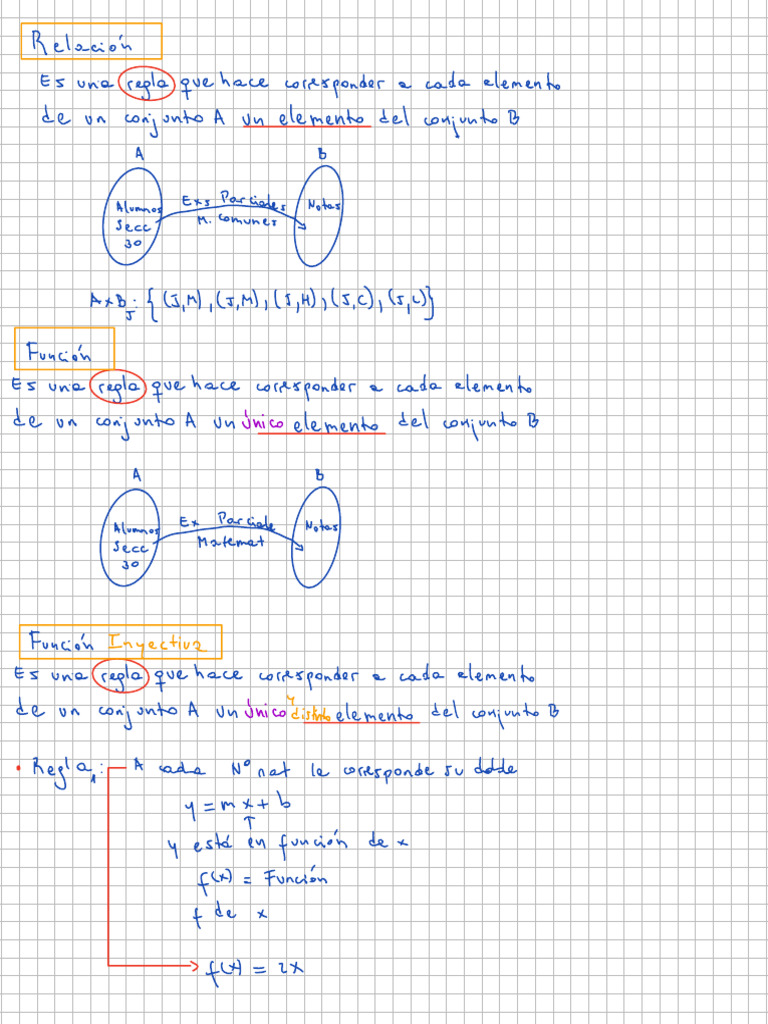 Relación
Es una regla que hace corresponder a cada elemento
de un conjunto A un elemento del conjunto B
A B
Alumnos Exs Parciales Notas
Secc M. Comunes
30
A×B: {(J,M), (J,M), (J,H), (J,C), (J,L)}
J
Función
Es una regla que hace corresponder a cada elemento
de un conjunto A un único elemento del conjunto B
A B
Alumnos Ex Parciale Notas
Secc Matemat
30
Función Inyectiva
Es una regla que hace corresponder a cada elemento
de un conjunto A un único y distinto elemento del conjunto B
• Regla₁: A cada Nº nat le corresponde su doble
y = mx + b
y está en función de x
f(x) = Función
f de x
f(x) = 2x